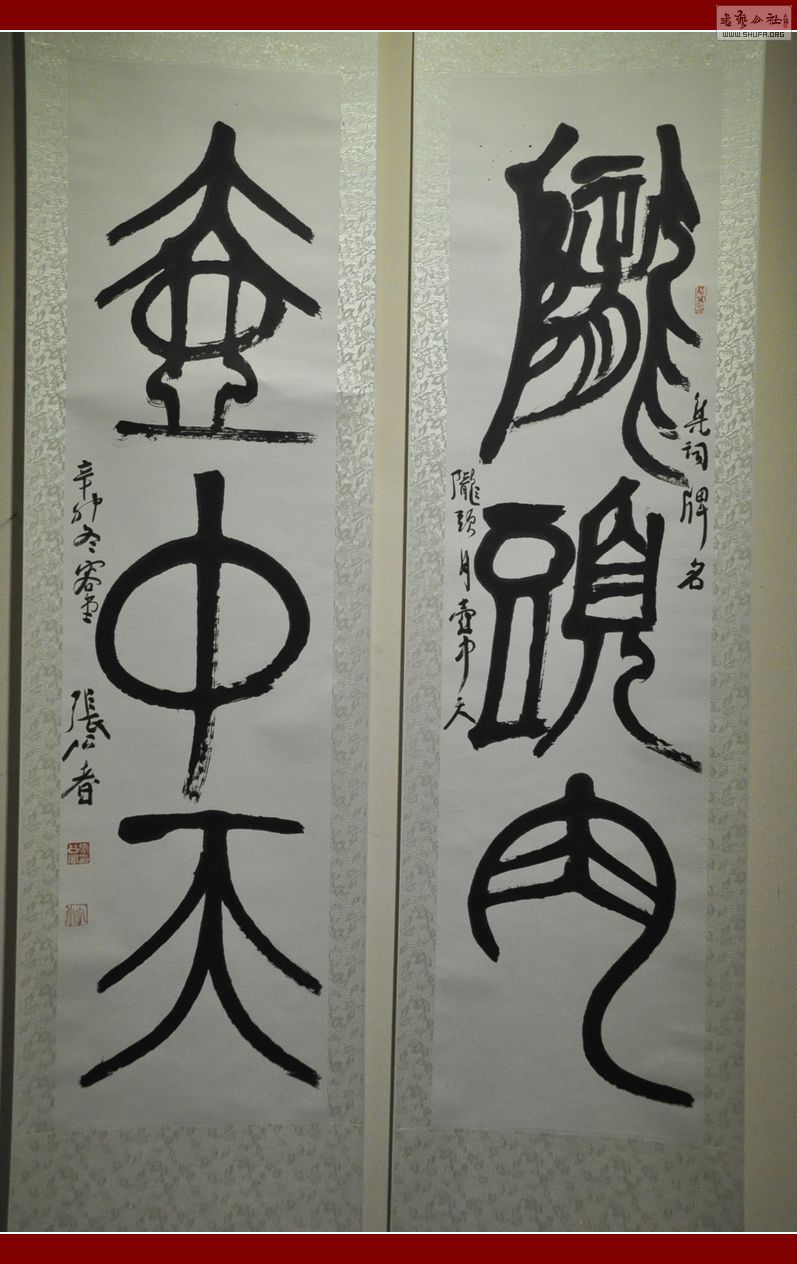 隴頭月
集詞牌名
隴頭月壺中天
壺中天
辛卯冬容堂
張公者
書藝公社
WWW.SHUFA.ORG